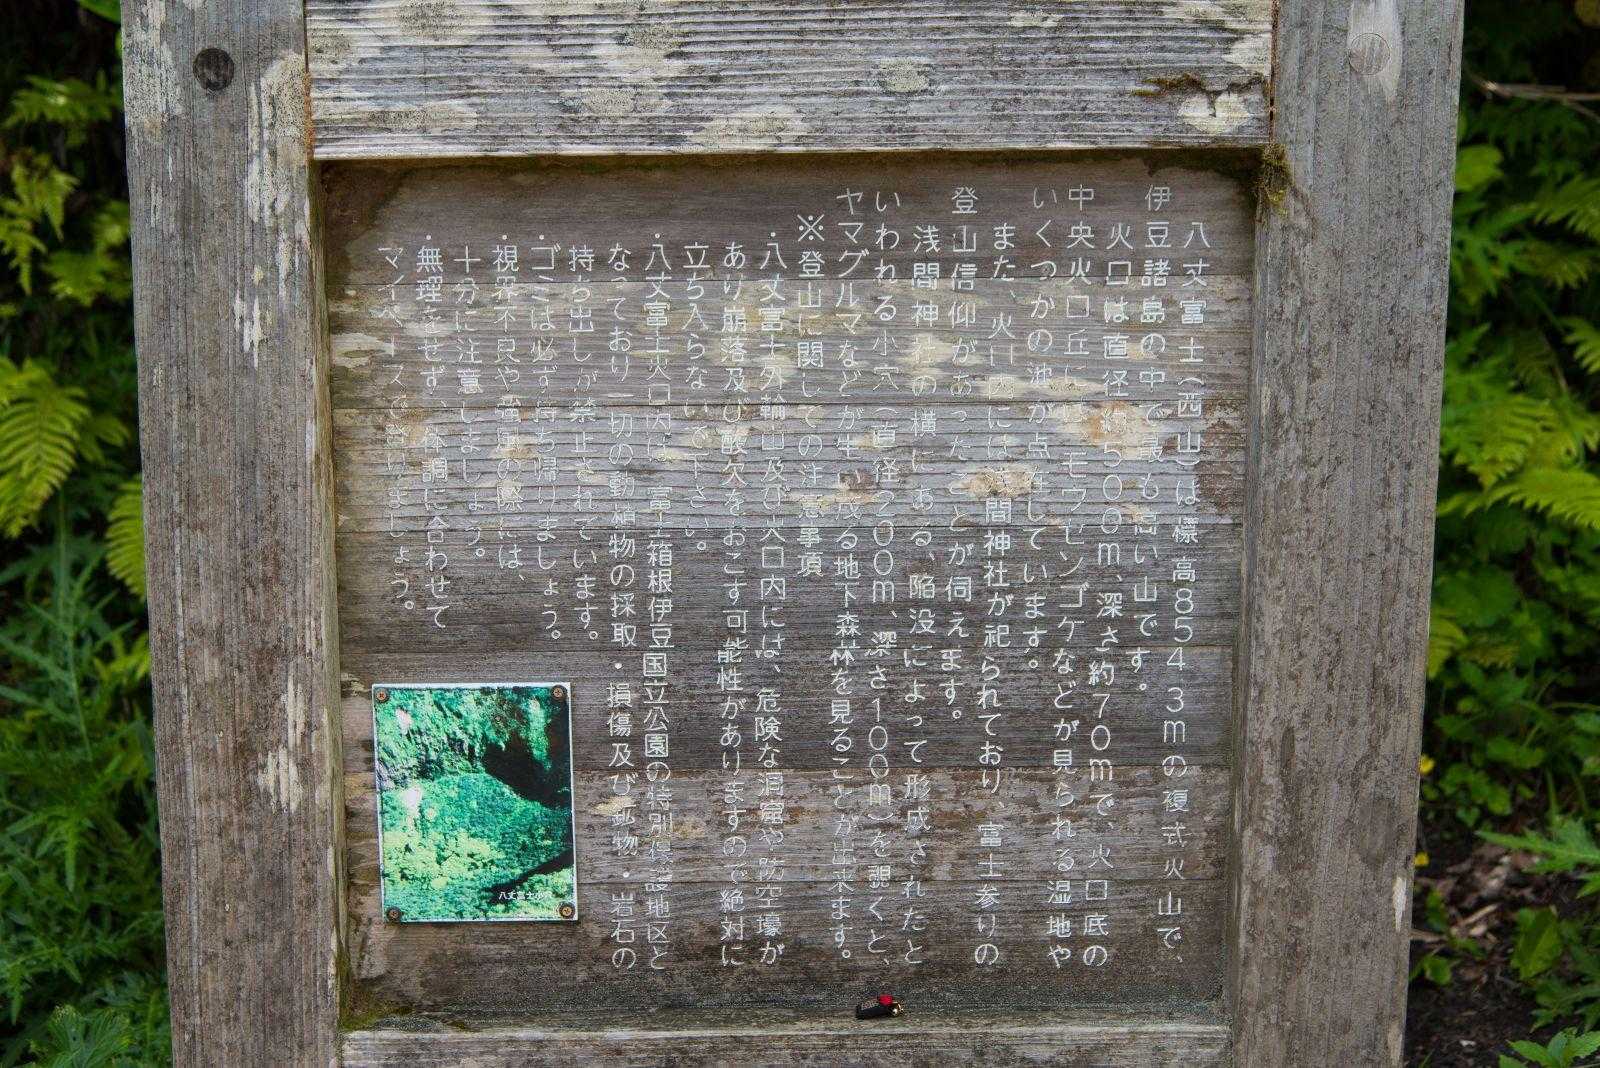 八丈富士(西山)は標高854.3mの複式火山で、
伊豆諸島の中で最も高い山です。
火口は直径約500m、深さ約70mで、火口底の
中央火口丘にはモウセンゴケなどが見られる湿地や
いくつかの沼が点在しています。
また、火口内には浅間神社が祀られており、富士参りの
登山信仰があったことが伺えます。
浅間神社の横にある、陥没によって形成されたと
いわれる小穴(直径200m、深さ100m)を覗くと、
ヤマグルマなどが生い茂る地下森林を見ることが出来ます。
※登山に関しての注意事項
・八丈富士外輪山及び火口内には、危険な洞窟や防空壕が
あり崩落及び酸欠をおこす可能性がありますので絶対に
立ち入らないで下さい。
・八丈富士火口内は、富士箱根伊豆国立公園の特別保護地区と
なっており一切の動植物の採取・損傷及び鉱物・岩石の
持ち出しが禁止されています。
・ゴミは必ず持ち帰りましょう。
・視界不良や強風の際には、
十分に注意しましょう。
・無理をせず、体調に合わせて
マイペースで登りましょう。
八丈富士小穴